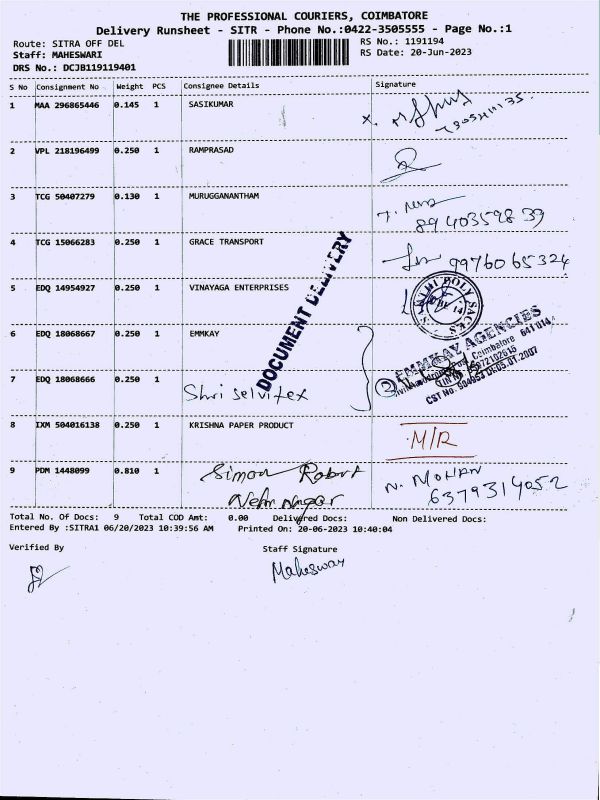 THE PROFESSIONAL COURIERS, COIMBATORE
Delivery Runsheet - SITR - Phone No.:0422-3505555 - Page No.:1
Route: SITRA OFF DEL
RS No.: 1191194
Staff: MAHESWARI
RS Date: 20-Jun-2023
DRS No.: DCJB119119401
S No Consignment No Weight PCS Consignee Details Signature
1 MAA 296865446 0.145 1 SASIKUMAR
2 VPL 218196499 0.250 1 RAMPRASAD
3 TCG 50407279 0.130 1 MURUGGANANTHAM
8940359839
4 TCG 15066283 0.250 1 GRACE TRANSPORT
9976065324
5 EDQ 14954927 0.250 1 VINAYAGA ENTERPRISES
DOCUMENT DELIVERY
6 EDQ 18068667 0.250 1 EMMKAY
EMMKAY AGENCIES
Coimbatore 641 014
CST No. 904953 Dt:05.01.2007
7 EDQ 18068666 0.250 1
Shri selvitex
8 IXM 504016138 0.250 1 KRISHNA PAPER PRODUCT
M/R
9 PDM 1448099 0.810 1 Simon Robert
N. MOHAN
Nehru nagar
6379314052
Total No. Of Docs: 9 Total COD Amt: 0.00 Delivered Docs: Non Delivered Docs:
Entered By :SITRA1 06/20/2023 10:39:56 AM Printed On: 20-06-2023 10:40:04
Verified By Staff Signature
Maheswari